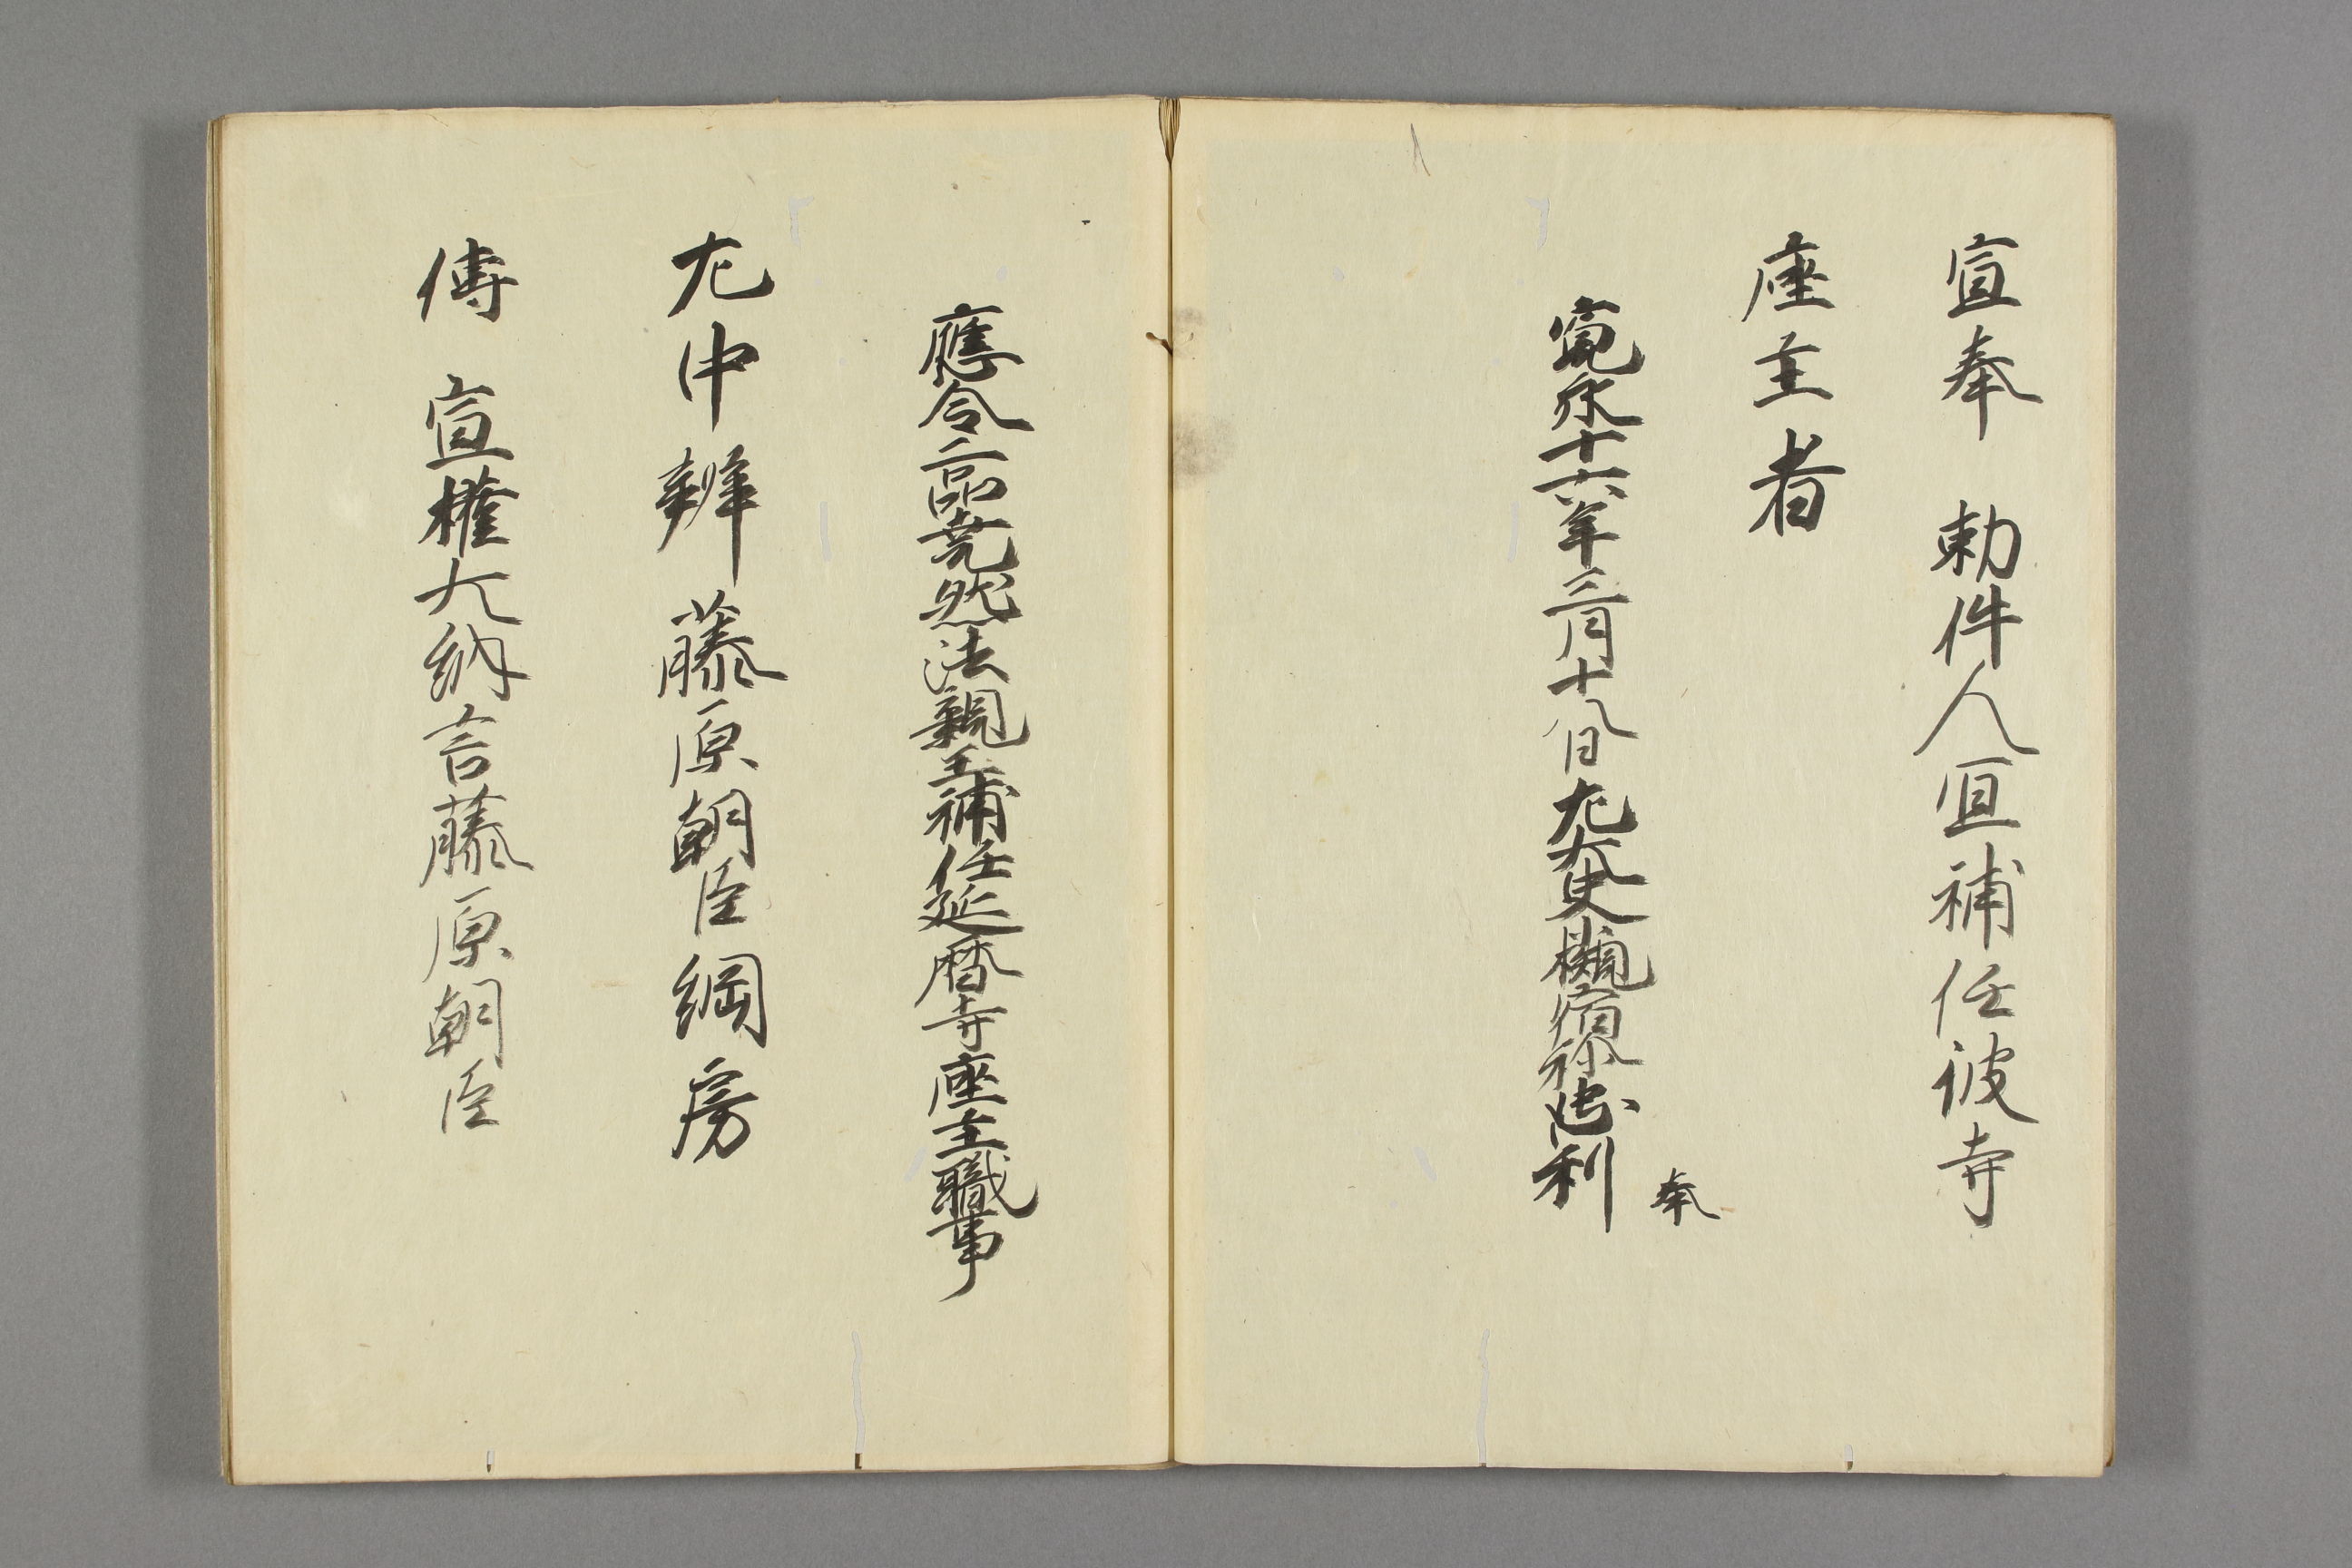 宣奉　勅件人宜補任彼寺
座主者
寛永十六年三月十八日左大史槻宿祢忠利
奉
應令二品堯然法親王補任延暦寺座主職事
左中辨藤原朝臣綱房
傳　宣權大納言藤原朝臣